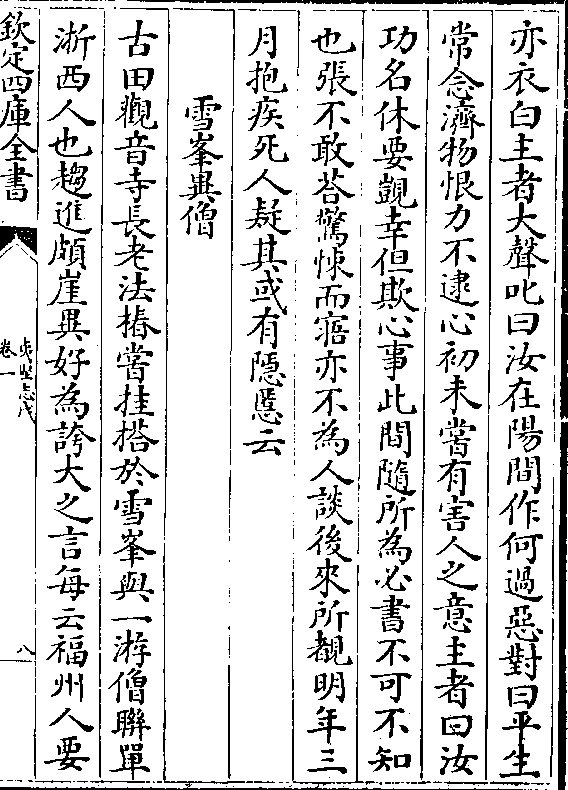 亦衣白主者大聲叱曰汝在陽間作何過惡對曰平生
常念濟物恨力不逮心初未嘗有害人之意主者曰汝
功名休要覬幸但欺心事此間隨所為必書不可不知
也張不敢荅驚悚而寤亦不為人談後來所覩明年三
月抱疾死人疑其或有隱慝云
雪峯異僧
古田觀音寺長老法椿嘗挂搭於雪峯與一游僧聯單
浙西人也趨進頗崖異好為誇大之言每云福州人要
欽定四庫全書
夷堅志戊
卷一
八